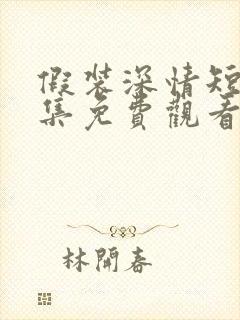 假裝深情短
集免費觀看
林開春